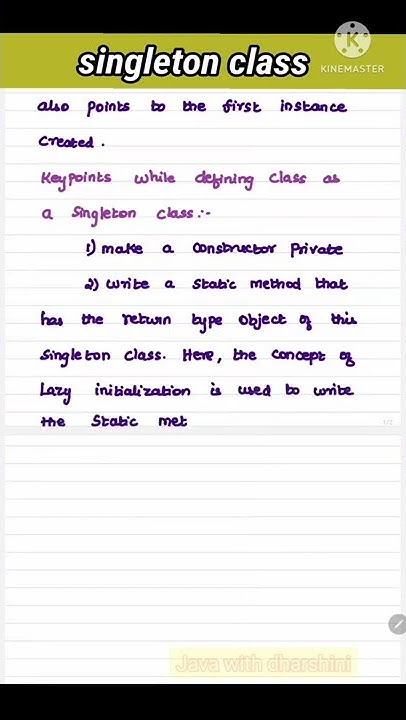 singleton class
K
KINEMASTER
also points to the first instance
created.
Keypoints while defining class as
a singleton class:-
1) make a constructor private
2) write a static method that
has the return type object of this
singleton class. Here, the concept of
Lazy initialization is used to write
the static met
1/2
Java with dharshini